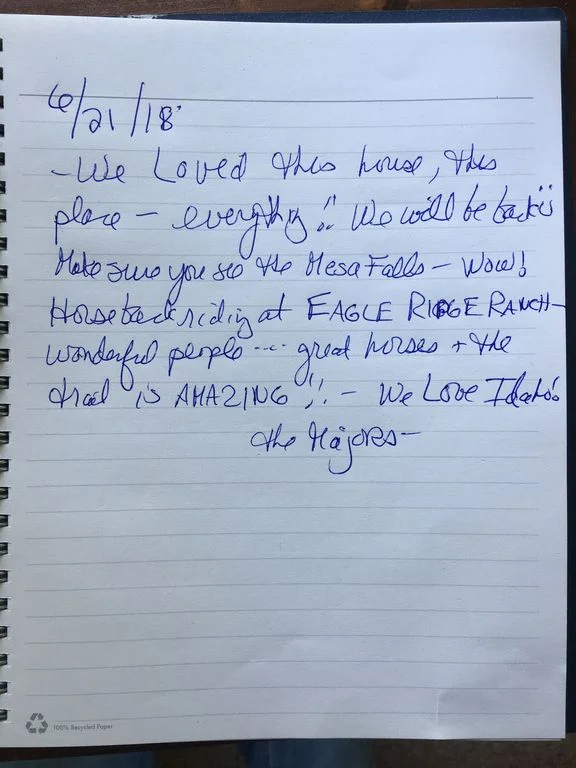 6/21/18
- We Loved this house, this
place - everything!! We will be back!!
Make sure you see the Mesa Falls - Wow!
Horseback riding at EAGLE RIDGE RANCH -
wonderful people --- great horses + the
trail is AMAZING!! - We Love Idaho!
the Majors -
100% Recycled Paper